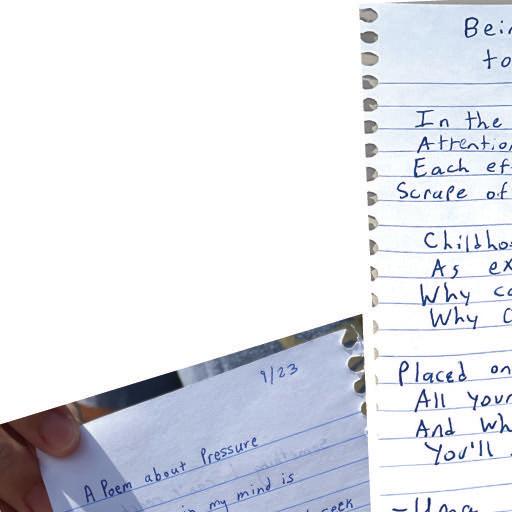 Bein
to
In the
Attention
Each ef
Scrape of
Childho
As ex
Why co
Why
Placed on
All Your
And Wh
You'll
9/23
A Poem about Pressure
in my mind is
seek